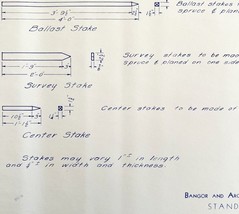 Ballast stakes
spruce & plan
3'-9½"
4'-0"
Ballast Stake
Survey stakes to be mad
spruce & planed on one side
1'-9"
3"
2'-0"
Survey Stake
Center stakes to be made of
10½"
3"
1'-1½"
Center Stake
Stakes may vary 1" ± in length
and ⅛" ± in width and thickness.
BANGOR AND AR
STAND